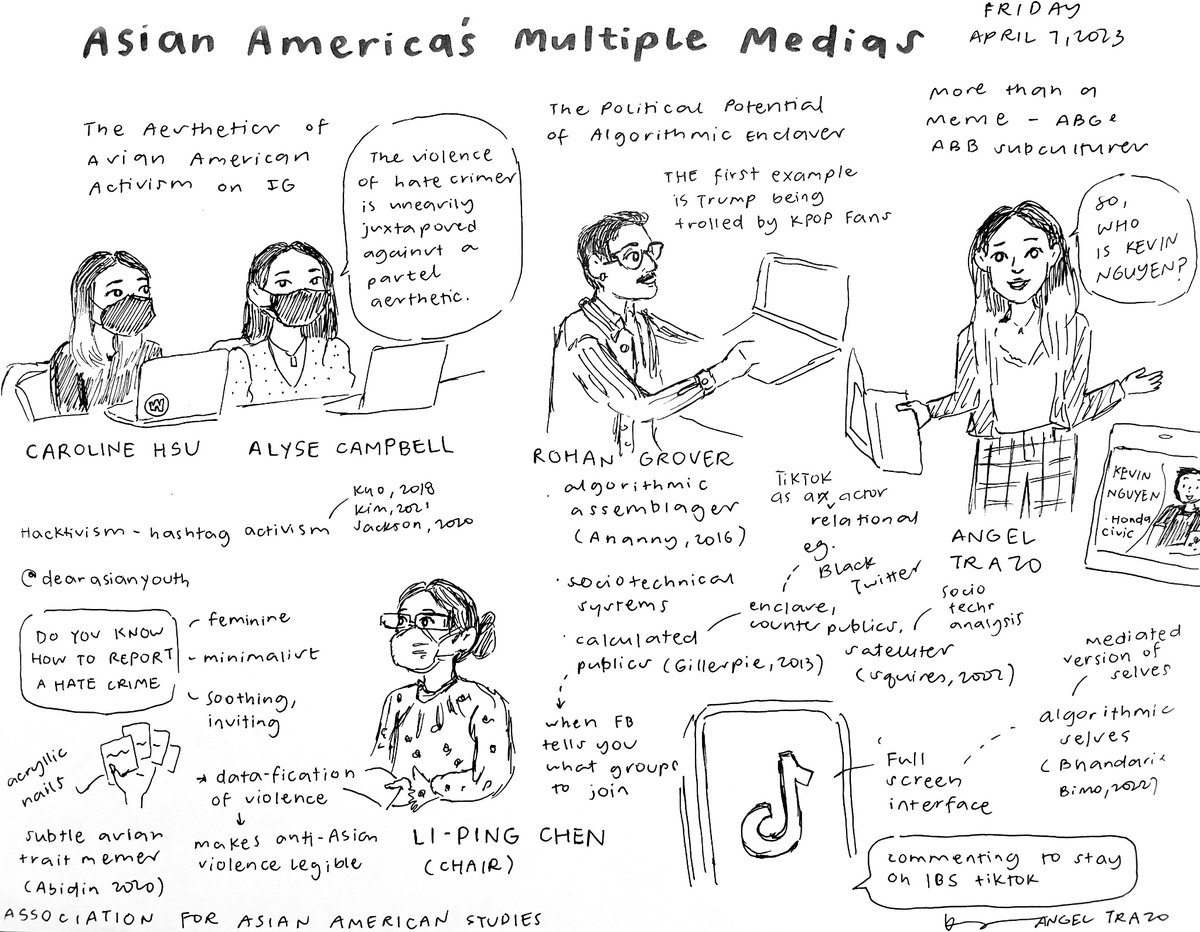 Asian America's Multiple Medias
FRIDAY
APRIL 7, 2023
The Aesthetics of
Asian American
Activism on IG
The violence
of hate crimes
is uneasily
juxtaposed
against a
pastel
aesthetic.
CAROLINE HSU
ALYSE CAMPBELL
Hacktivism - hashtag activism
Kuo, 2018
Kim, 2021
Jackson, 2020
@dearasianyouth
DO YOU KNOW
HOW TO REPORT
A HATE CRIME
feminine
minimalist
soothing,
inviting
acryllic
nails
subtle asian
trait memes
(Abidin 2020)
* data-fication
of violence
makes anti-Asian
violence legible
LI-PING CHEN
(CHAIR)
The Political Potential
of Algorithmic Enclaves
THE first example
is Trump being
trolled by KPOP Fans
ROHAN GROVER
· algorithmic
assemblages
(Ananny, 2016)
· sociotechnical
systems
· calculated
publics (Gillespie, 2013)
when FB
tells you
what groups
to join
TikTOK
as an actor
relational
eg.
Black
Twitter
enclave,
counter publics,
satellites
(squires, 2002)
socio
tech
analysis
More than a
meme - ABG &
ABB subcultures
SO,
WHO
IS KEVIN
NGUYEN?
ANGEL
TRAZO
KEVIN
NGUYEN
· Honda
civic
mediated
version of
selves
algorithmic
selves
(Bhandari &
Bimo, 2022)
Full
screen
interface
commenting to stay
on IBS tiktok
ASSOCIATION FOR ASIAN AMERICAN STUDIES
ANGEL TRAZO